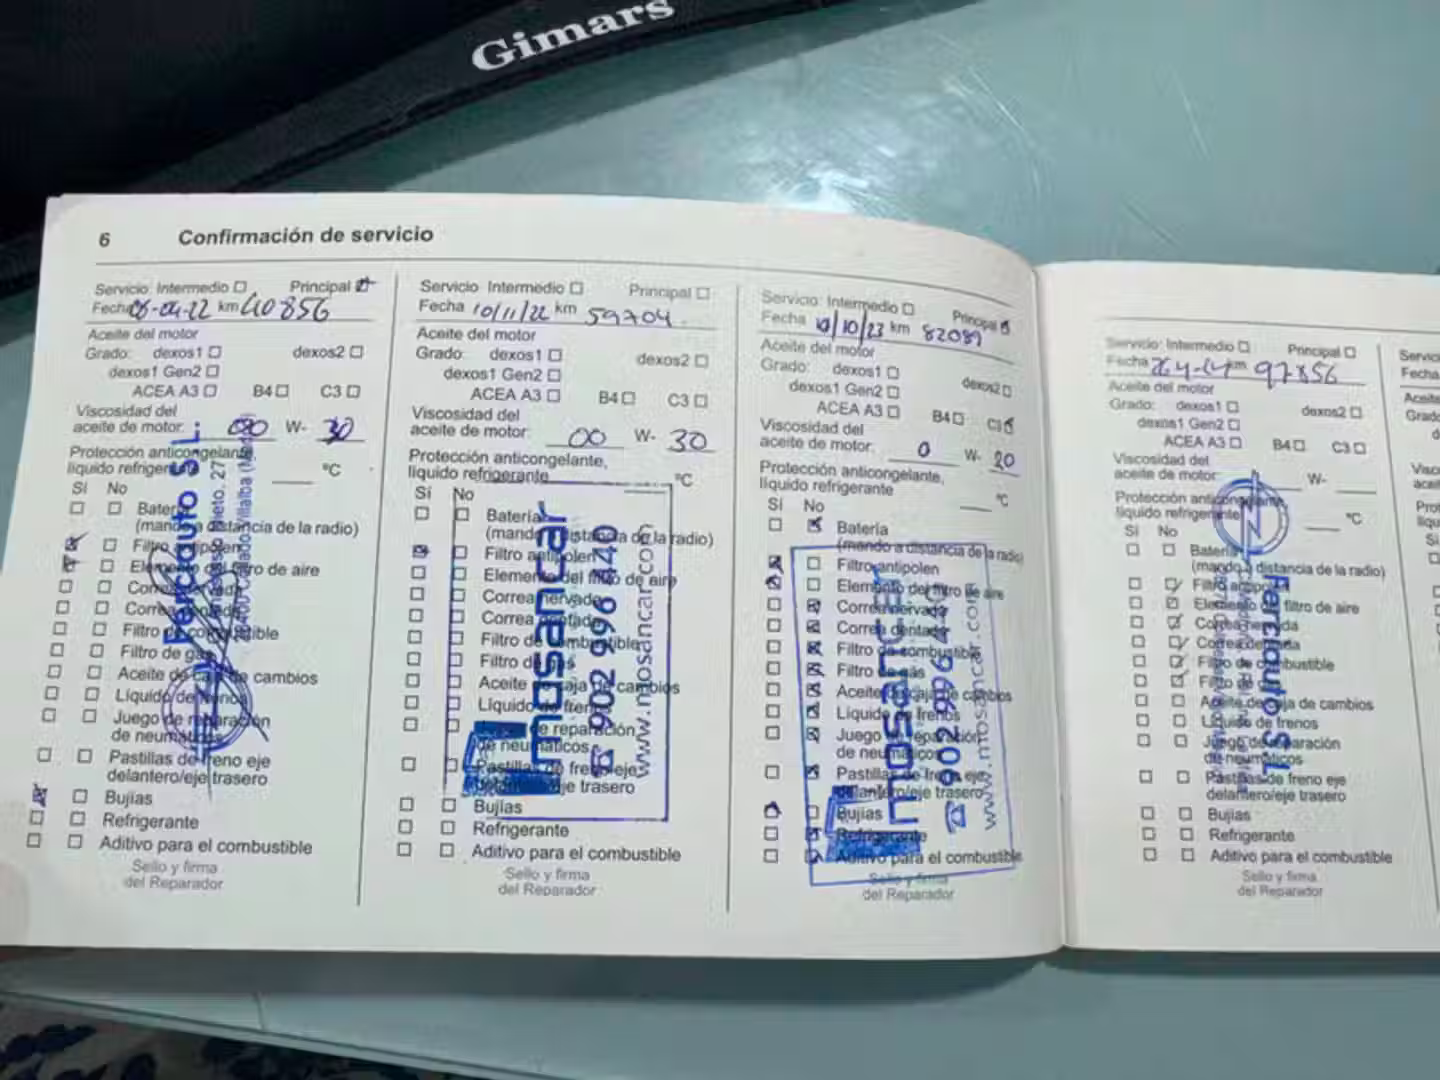 Gimars
6 Confirmación de servicio
Servicio: Intermedio Principal
Fecha 06-04-22 km 40856
Aceite del motor
Grado: dexos1 dexos2
dexos1 Gen2
ACEA A3 B4 C3
Viscosidad del
aceite de motor: 00 W- 30
Protección anticongelante,
líquido refrigerante °C
Sí No
Batería
(mando a distancia de la radio)
Filtro antipolen
Elemento del filtro de aire
Correa nervada
Correa dentada
Filtro de combustible
Filtro de gas
Aceite de caja de cambios
Líquido de frenos
Juego de reparación
de neumáticos
Pastillas de freno eje
delantero/eje trasero
Bujías
Refrigerante
Aditivo para el combustible
Sello y firma
del Reparador
Ferciauto S.L.
Servicio Intermedio Principal
Fecha 10/11/22 km 59704
Aceite del motor
Grado: dexos1 dexos2
dexos1 Gen2
ACEA A3 B4 C3
Viscosidad del
aceite de motor: 00 W- 30
Protección anticongelante,
líquido refrigerante °C
Sí No
Batería
(mando a distancia de la radio)
Filtro antipolen
Elemento del filtro de aire
Correa nervada
Correa dentada
Filtro de combustible
Filtro de gas
Aceite de caja de cambios
Líquido de frenos
Juego de reparación
de neumáticos
Pastillas de freno eje
delantero/eje trasero
Bujías
Refrigerante
Aditivo para el combustible
Sello y firma
del Reparador
mosancar
902 996 440
www.mosancar.com
Servicio: Intermedio Principal
Fecha 10/10/23 km 82089
Aceite del motor
Grado: dexos1 dexos2
dexos1 Gen2
ACEA A3 B4 C3
Viscosidad del
aceite de motor: 0 W- 20
Protección anticongelante,
líquido refrigerante °C
Sí No
Batería
(mando a distancia de la radio)
Filtro antipolen
Elemento del filtro de aire
Correa nervada
Correa dentada
Filtro de combustible
Filtro de gas
Aceite de caja de cambios
Líquido de frenos
Juego de reparación
de neumáticos
Pastillas de freno eje
delantero/eje trasero
Bujías
Refrigerante
Aditivo para el combustible
Sello y firma
del Reparador
mosancar
902 996 440
www.mosancar.com
Servicio: Intermedio Principal
Fecha km 97856
Aceite del motor
Grado: dexos1 dexos2
dexos1 Gen2
ACEA A3 B4 C3
Viscosidad del
aceite de motor: W-
Protección anticongelante,
líquido refrigerante °C
Sí No
Batería
(mando a distancia de la radio)
Filtro antipolen
Elemento del filtro de aire
Correa nervada
Correa dentada
Filtro de combustible
Filtro de gas
Aceite de caja de cambios
Líquido de frenos
Juego de reparación
de neumáticos
Pastillas de freno eje
delantero/eje trasero
Bujías
Refrigerante
Aditivo para el combustible
Sello y firma
del Reparador
Ferciauto S.L.